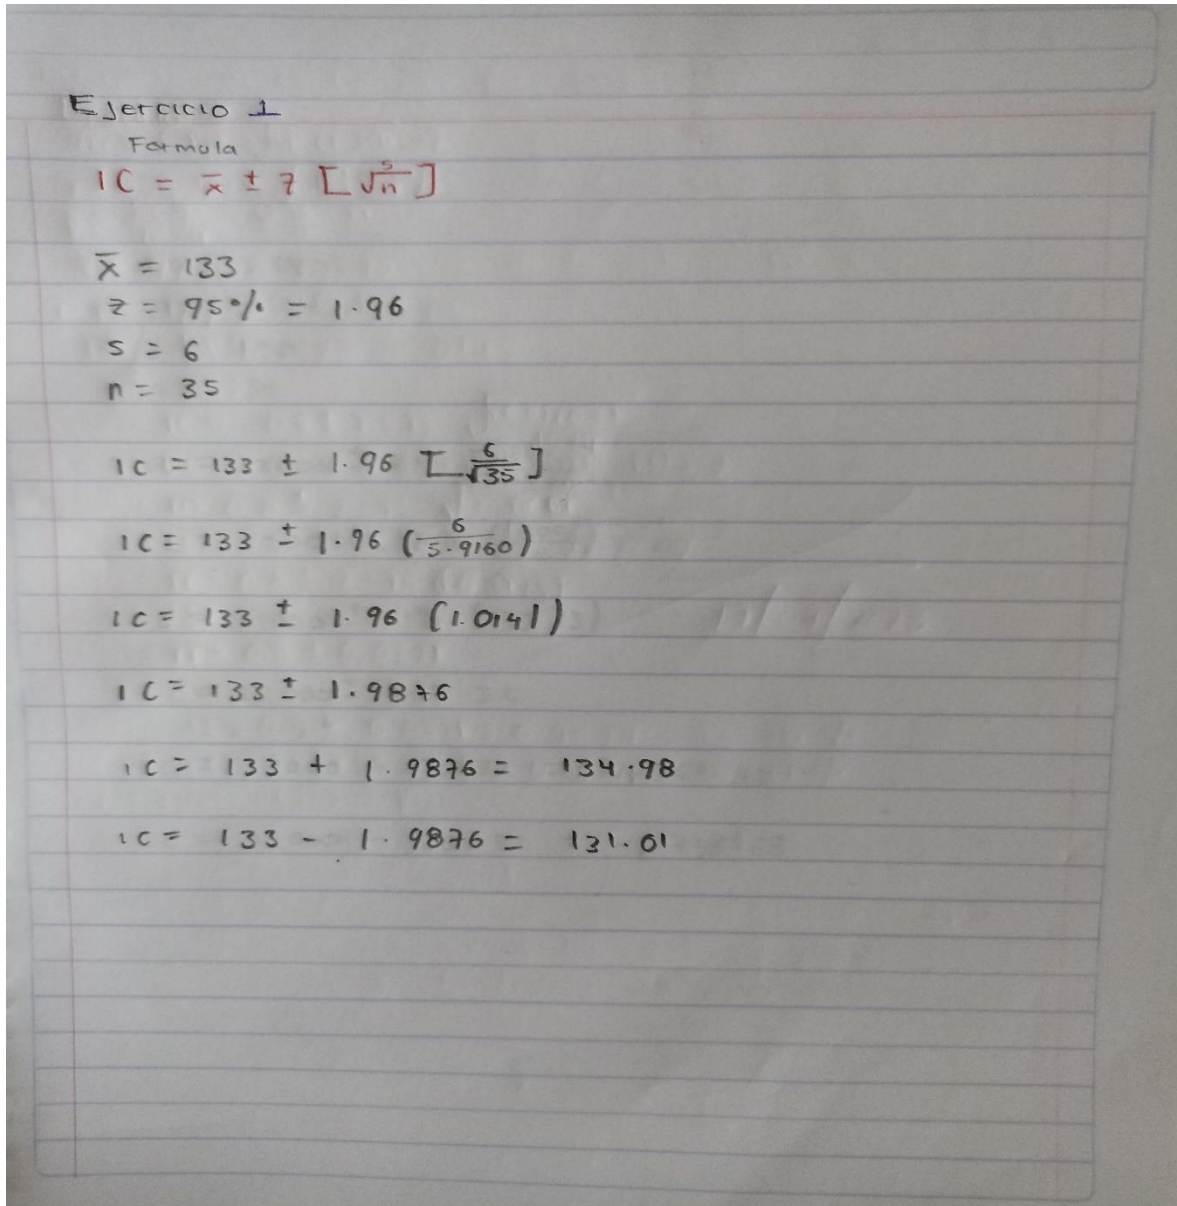 Ejercicio 1
Formula
IC = x̄ ± z [s/√n]
x̄ = 133
z = 95% = 1.96
s = 6
n = 35
IC = 133 ± 1.96 [6/√35]
IC = 133 ± 1.96 (6/5.9160)
IC = 133 ± 1.96 (1.0141)
IC = 133 ± 1.9876
IC = 133 + 1.9876 = 134.98
IC = 133 - 1.9876 = 131.01